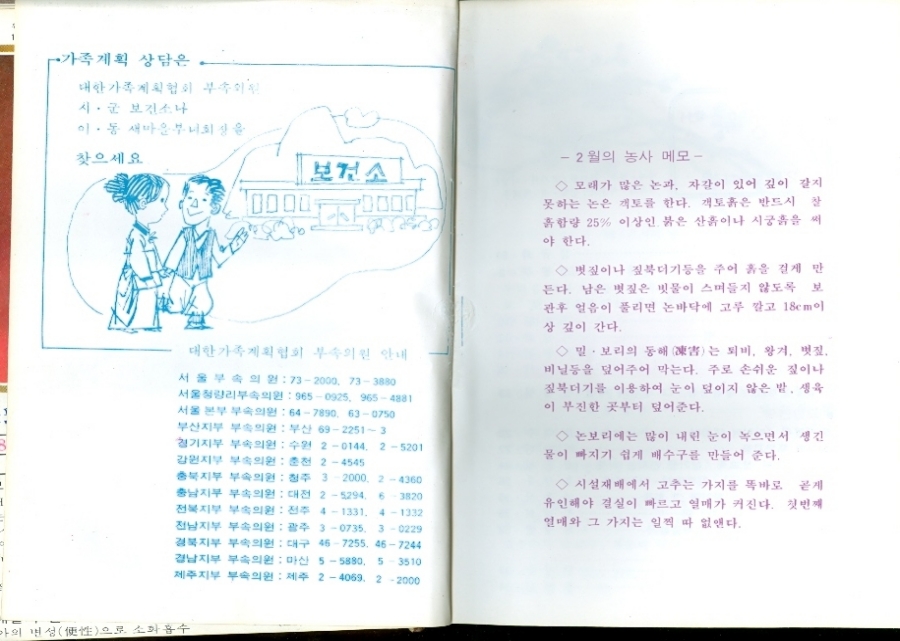 가족계획 상담은
대한가족계획협회 부속의원
시·군 보건소나
이·동 새마을부녀회장을
찾으세요
보건소
대한가족계획협회 부속의원 안내
서울부속의원 : 73-2000, 73-3880
서울청량리부속의원 : 965-0925, 965-4881
서울 본부 부속의원 : 64-7890, 63-0750
부산지부 부속의원 : 부산 69-2251~3
경기지부 부속의원 : 수원 2-0144, 2-5201
강원지부 부속의원 : 춘천 2-4545
충북지부 부속의원 : 청주 3-2000, 2-4360
충남지부 부속의원 : 대전 2-5294, 6-3820
전북지부 부속의원 : 전주 4-1331, 4-1332
전남지부 부속의원 : 광주 3-0735, 3-0229
경북지부 부속의원 : 대구 46-7255, 46-7244
경남지부 부속의원 : 마산 5-5880, 5-3510
제주지부 부속의원 : 제주 2-4069, 2-2000
(便性)으로 소화흡수
- 2월의 농사 메모 -
◇ 모래가 많은 논과, 자갈이 있어 깊이 갈지
못하는 논은 객토를 한다. 객토흙은 반드시 찰
흙함량 25% 이상인 붉은 산흙이나 시궁흙을 써
야 한다.
◇ 볏짚이나 짚북더기등을 주어 흙을 걸게 만
든다. 남은 볏짚은 빗물이 스며들지 않도록 보
관후 얼음이 풀리면 논바닥에 고루 깔고 18cm이
상 깊이 간다.
◇ 밀·보리의 동해(凍害)는 퇴비, 왕겨, 볏짚,
비닐등을 덮어주어 막는다. 주로 손쉬운 짚이나
짚북더기를 이용하여 눈이 덮이지 않은 밭, 생육
이 부진한 곳부터 덮어준다.
◇ 논보리에는 많이 내린 눈이 녹으면서 생긴
물이 빠지기 쉽게 배수구를 만들어 준다.
◇ 시설재배에서 고추는 가지를 똑바로 곧게
유인해야 결실이 빠르고 열매가 커진다. 첫번째
열매와 그 가지는 일찍 따 없앤다.